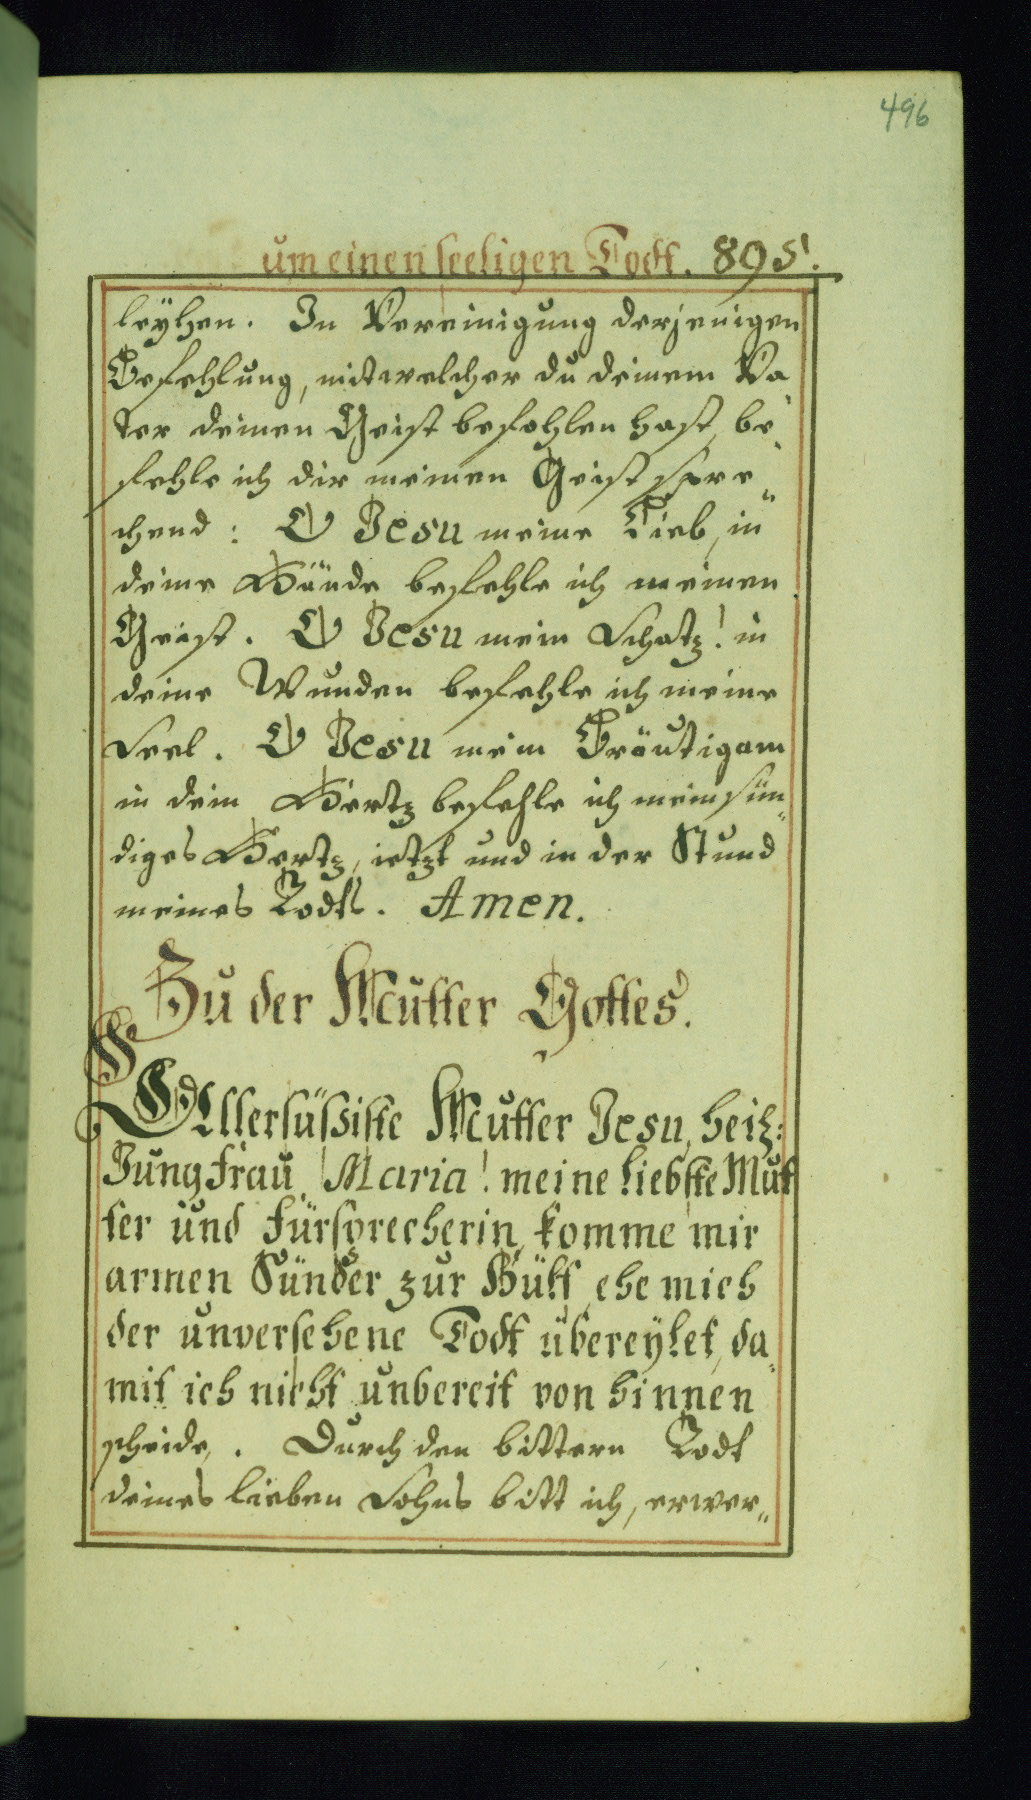 496
um einen seeligen Todt. 895.
leyhen. In Vereinigung derjenigen
Befehlung, mit welcher du deinem Va„
ter deinen Geist befohlen hast, be„
fehle ich dir meinen Geist spre„
chend: O Jesu meine Lieb, in
deine Hände befehle ich meinen
Geist. O Jesu mein Schatz! in
deine Wunden befehle ich meine
Seel. O Jesu mein Bräutigam
in dein Hertz befehle ich mein sün„
diges Hertz, ietzt und in der Stund
meines Todts. Amen.
Zu der Mutter Gottes.
O Allersüßiste Mutter Jesu, heilg:
Jungfrau Maria! meine liebste Mut
ter und fürsprecherin, komme mir
armen Sünder zur Hülf, ehe mich
der unversehene Todt übereylet, da„
mit ich nicht unbereit von hinnen
scheide. Durch den bittern Todt
deines lieben Sohns bitt ich, erwer„